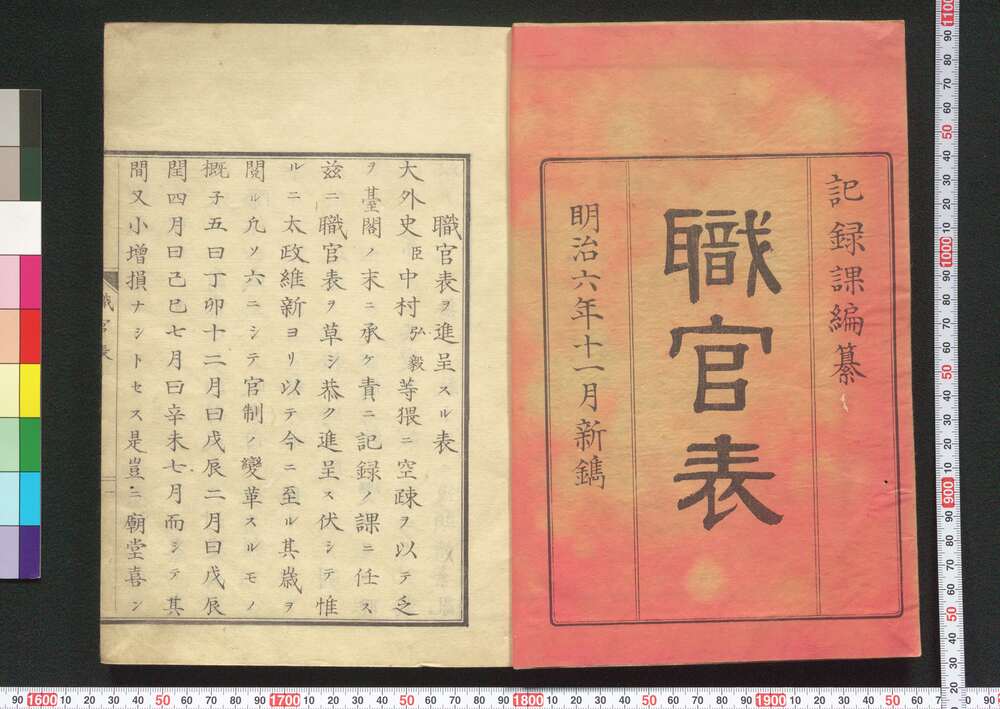 記録課編纂
職官表
明治六年十一月新鐫
職官表ヲ進呈スル表
大外史臣中村弘毅等猥ニ空疎ヲ以テ乏
ヲ臺閣ノ末ニ承ケ責ニ記録ノ課ニ任ス
茲ニ職官表ヲ草シ恭ク進呈ス伏シテ惟
ルニ太政維新ヨリ以テ今ニ至ル其歳ヲ
閲ル凡ソ六ニシテ官制ノ變革スルモノ
概子五曰丁卯十二月曰戊辰二月曰戊辰
閏四月曰己巳七月曰辛未七月而シテ其
間又小増損ナシトセス是豈ニ廟堂喜ン
職官表
一